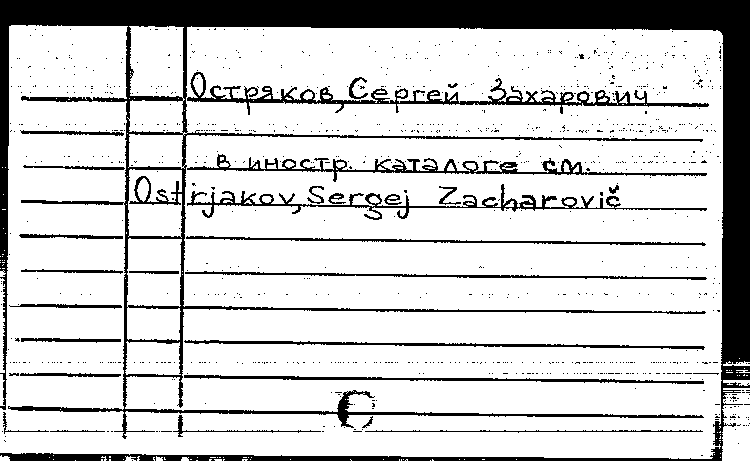 Остряков, Сергей Захарович
в иностр. каталоге см.
Ostrjakov, Sergej Zacharovič